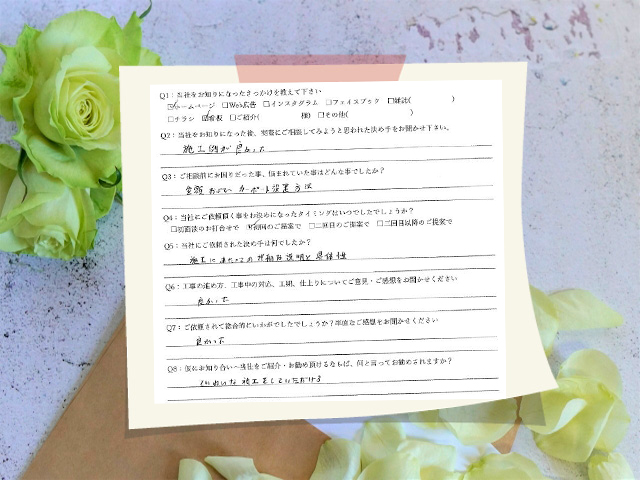 Q1：当社をお知りになったきっかけを教えて下さい
☑ホームページ □Web広告 □インスタグラム □フェイスブック □雑誌( )
□チラシ ☑看板 □ご紹介( 様) □その他( )
Q2：当社をお知りになった後、実際にご相談してみようと思われた決め手をお聞かせ下さい。
施工例が良かった
Q3：ご相談前にお困りだった事、悩まれていた事はどんな事でしたか？
金額 および カーポート設置方法
Q4：当社にご依頼頂く事をお決めになったタイミングはいつでしたでしょうか？
□初面談のお打合せで ☑初回のご提案で □二回目のご提案で □三回目以降のご提案で
Q5：当社にご依頼された決め手は何でしたか？
施工にあたっての 説明と
Q6：工事の進め方、工事中の対応、工期、仕上りについてご意見・ご感想をお聞かせください
良かった
Q7：ご依頼されて総合的にいかがでしたでしょうか？率直なご感想をお聞かせください
良かった
Q8：仮にお知り合いへ当社をご紹介・お勧め頂けるならば、何と言ってお勧めされますか？
ていねいな 施工をしていただける